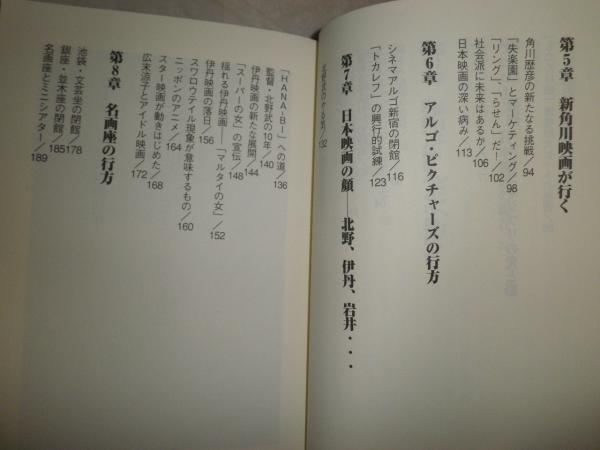 第5章 新角川映画が行く
角川歴彦の新たなる挑戦／94
「失楽園」とマーケティング／98
「リング」「らせん」だ！／102
社会派に未来はあるか／106
日本映画の深い病み／113
第6章 アルゴ・ピクチャーズの行方
シネマアルゴ新宿の閉館／116
「トカレフ」の興行的試練／123
第7章 日本映画の顔——北野、伊丹、岩井・・・
132
「HANA-BI」への道／136
監督・北野武の10年／140
伊丹映画の新たな展開／144
「スーパーの女」の宣伝／148
揺れる伊丹映画——「マルタイの女」／152
伊丹映画の落日／156
スワロウテイル現象が意味するもの／160
ニッポンのアニメ／164
スター映画が動きはじめた／168
広末涼子とアイドル映画／172
第8章 名画座の行方
池袋・文芸坐の閉館／178
銀座・並木座の閉館／185
名画座とミニシアター／189